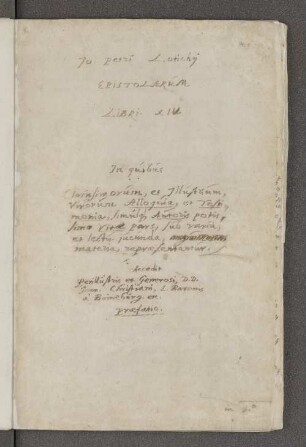 Jo petri Lotichij
EPISTOLARUM
LIBRI XIII
In quibus
Clarissimorum, et Illustrium,
Virorum Alloquia, et Testi,
monia, simulq; Autoris potis,
sima vitæ pars, sub varia,
et lectu jucunda,
materia repræsentantur.
Accedit
perillustris ac Generosi, D.D.
Joan. Christiani, L. Baronis
à Boineburg etc.
præfatio.